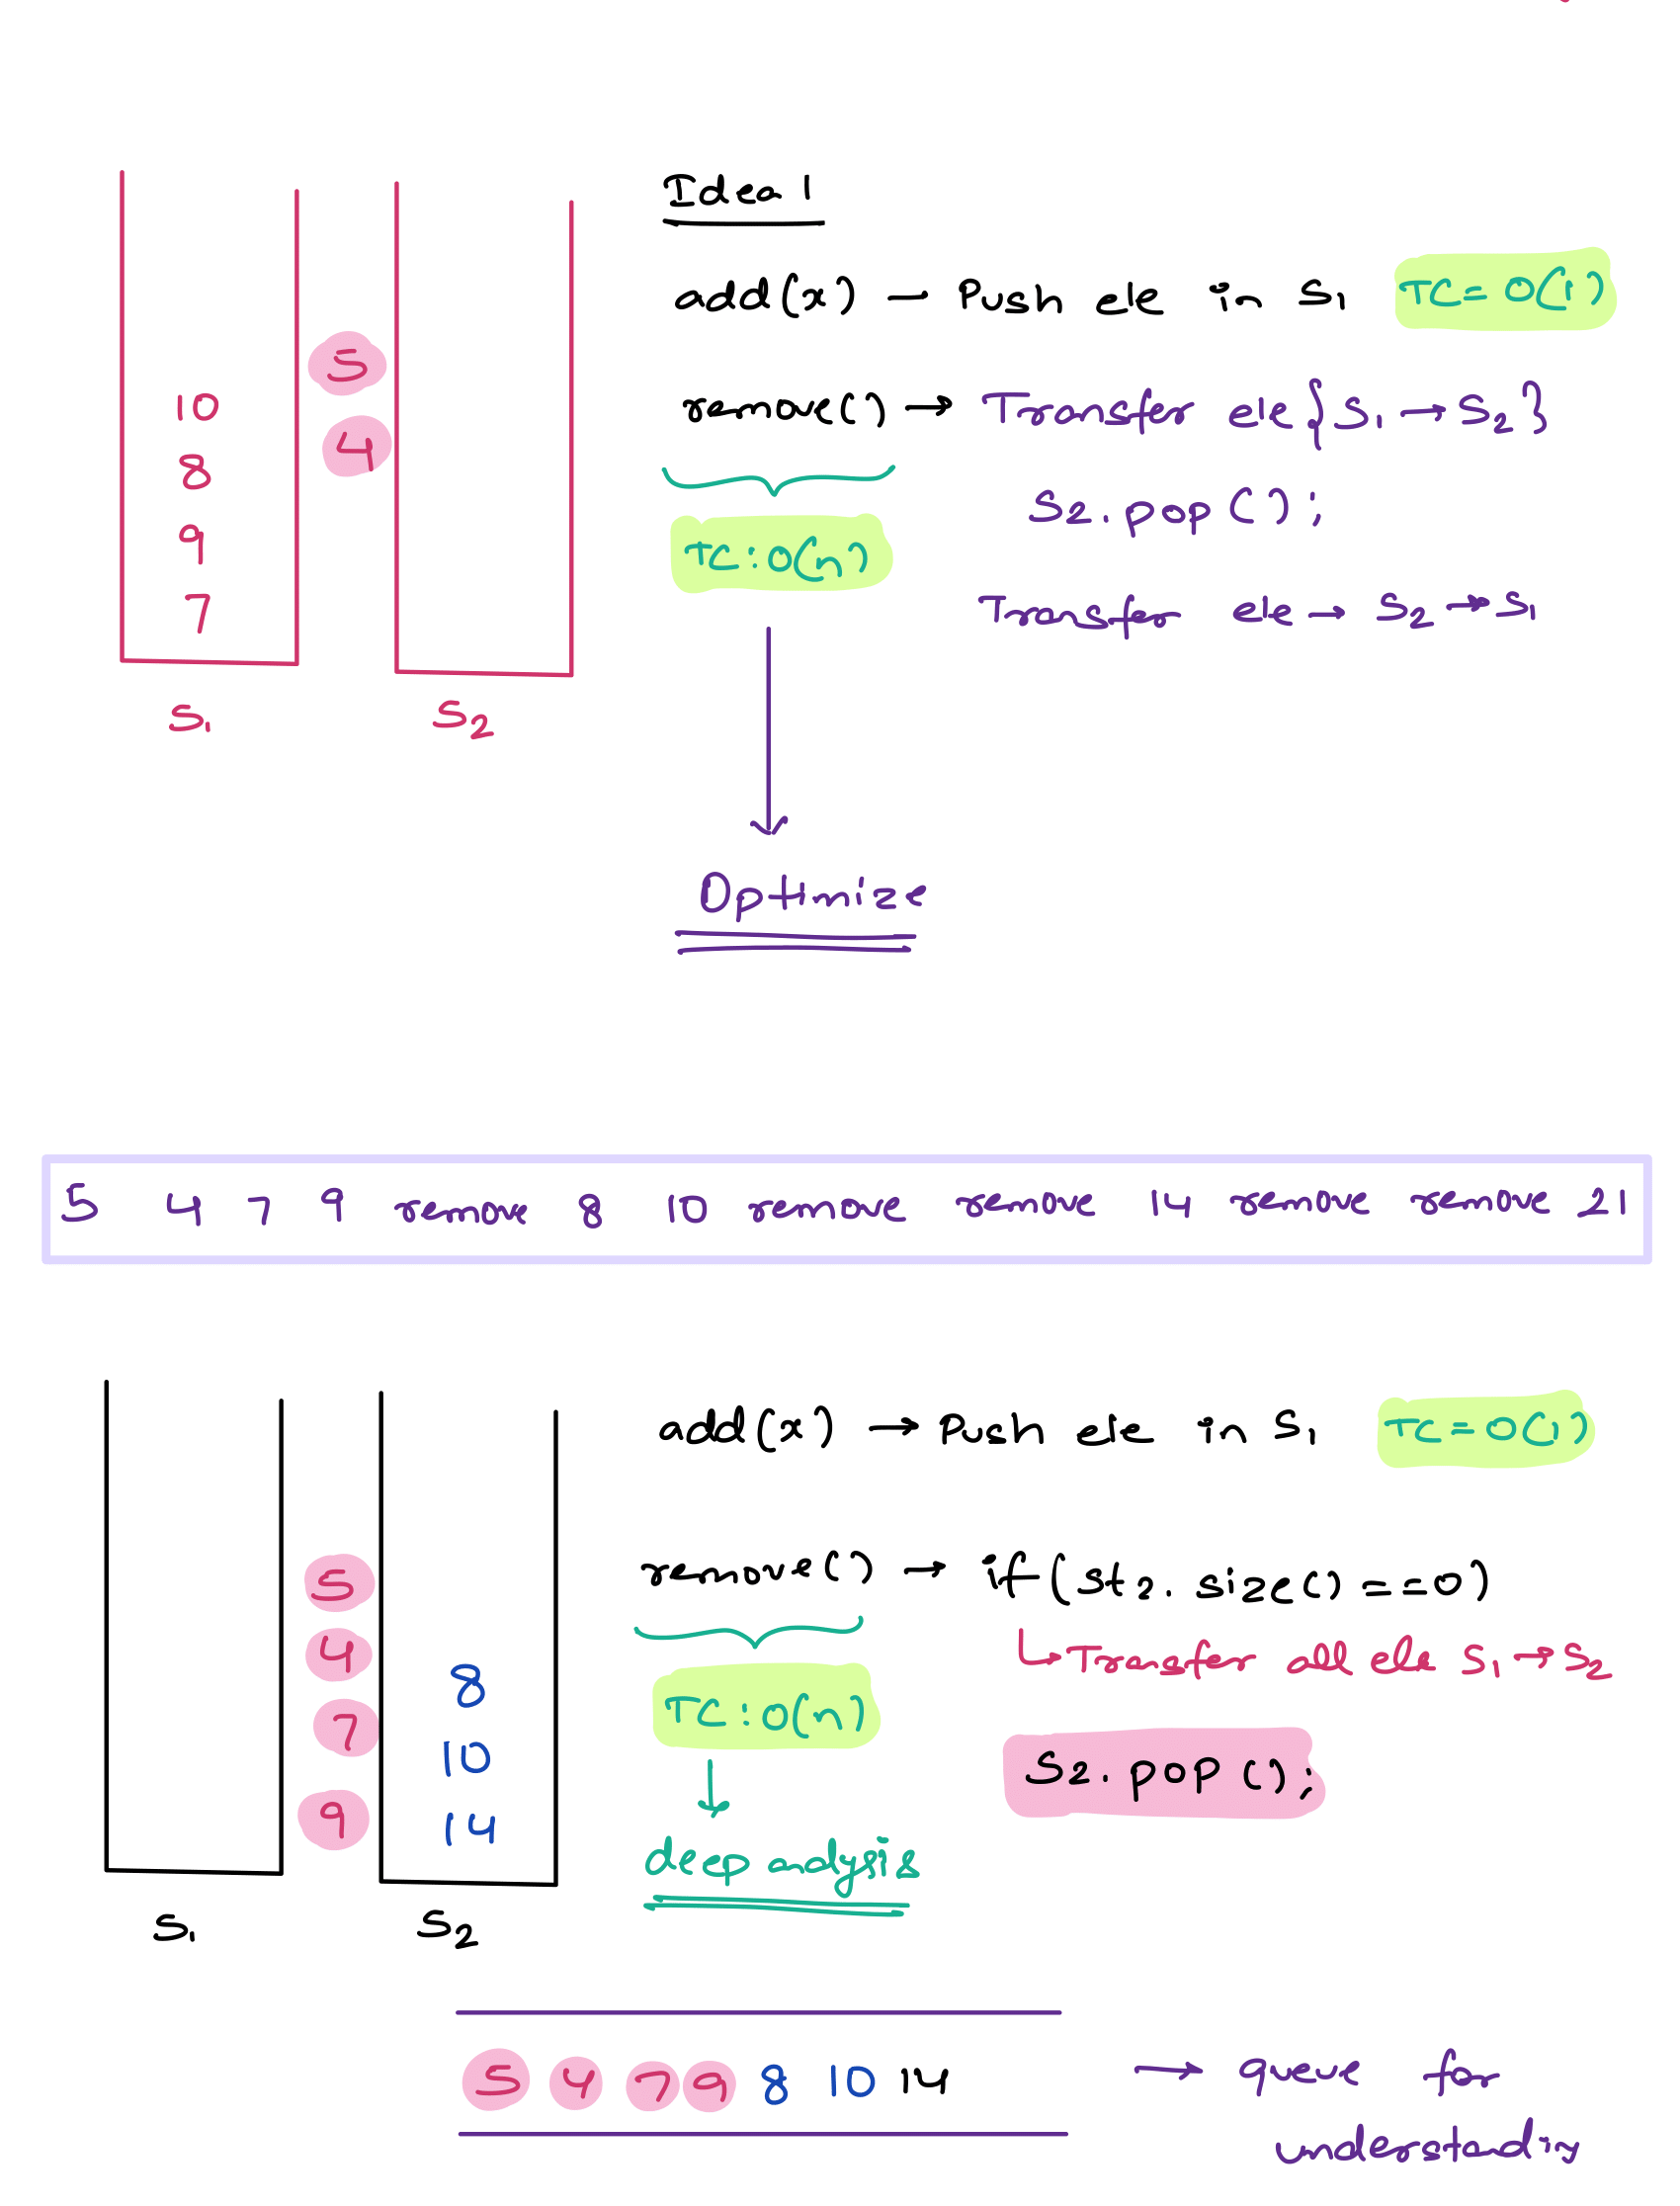 Idea 1
add(x) — Push ele in S1 TC= O(1)
5
10
remove() → Transfer ele{S1 → S2}
4
8
S2.pop();
9
TC:O(n)
7
Transfer ele → S2 → S1
S1 S2
Optimize
5 4 7 9 remove 8 10 remove remove 14 remove remove 21
add(x) → Push ele in S1 TC=O(1)
remove() → if(st2.size()==0)
5
4
↳Transfer all ele S1→S2
8
7
TC:O(n)
10
S2.pop();
9
14
deep analysis
S1 S2
5 4 7 9 8 10 14 → queue for
understanding